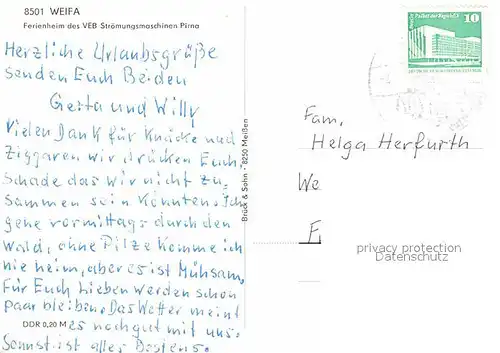 8501 WEIFA
Ferienheim des VEB Strömungsmaschinen Pirna
Herzliche Urlaubsgrüße
senden Euch Beiden
Gerta und Willy
Vielen Dank für Knäcke und
Ziggaren wir drücken Euch.
Schade das wir nicht zu-
sammen sein konnten. Ich
gehe vormittags durch den
Wald, ohne Pilze komme ich
nie heim, aber es ist Mühsam.
Für Euch Lieben werden schon
paar bleiben. Das Wetter meint
es noch gut mit uns.
Sonst ist alles Bestens.
DDR 0,20 M
Brück & Sohn · 8250 Meißen
10
Fam.
Helga Herfurth
We
F
privacy protection
Datenschutz